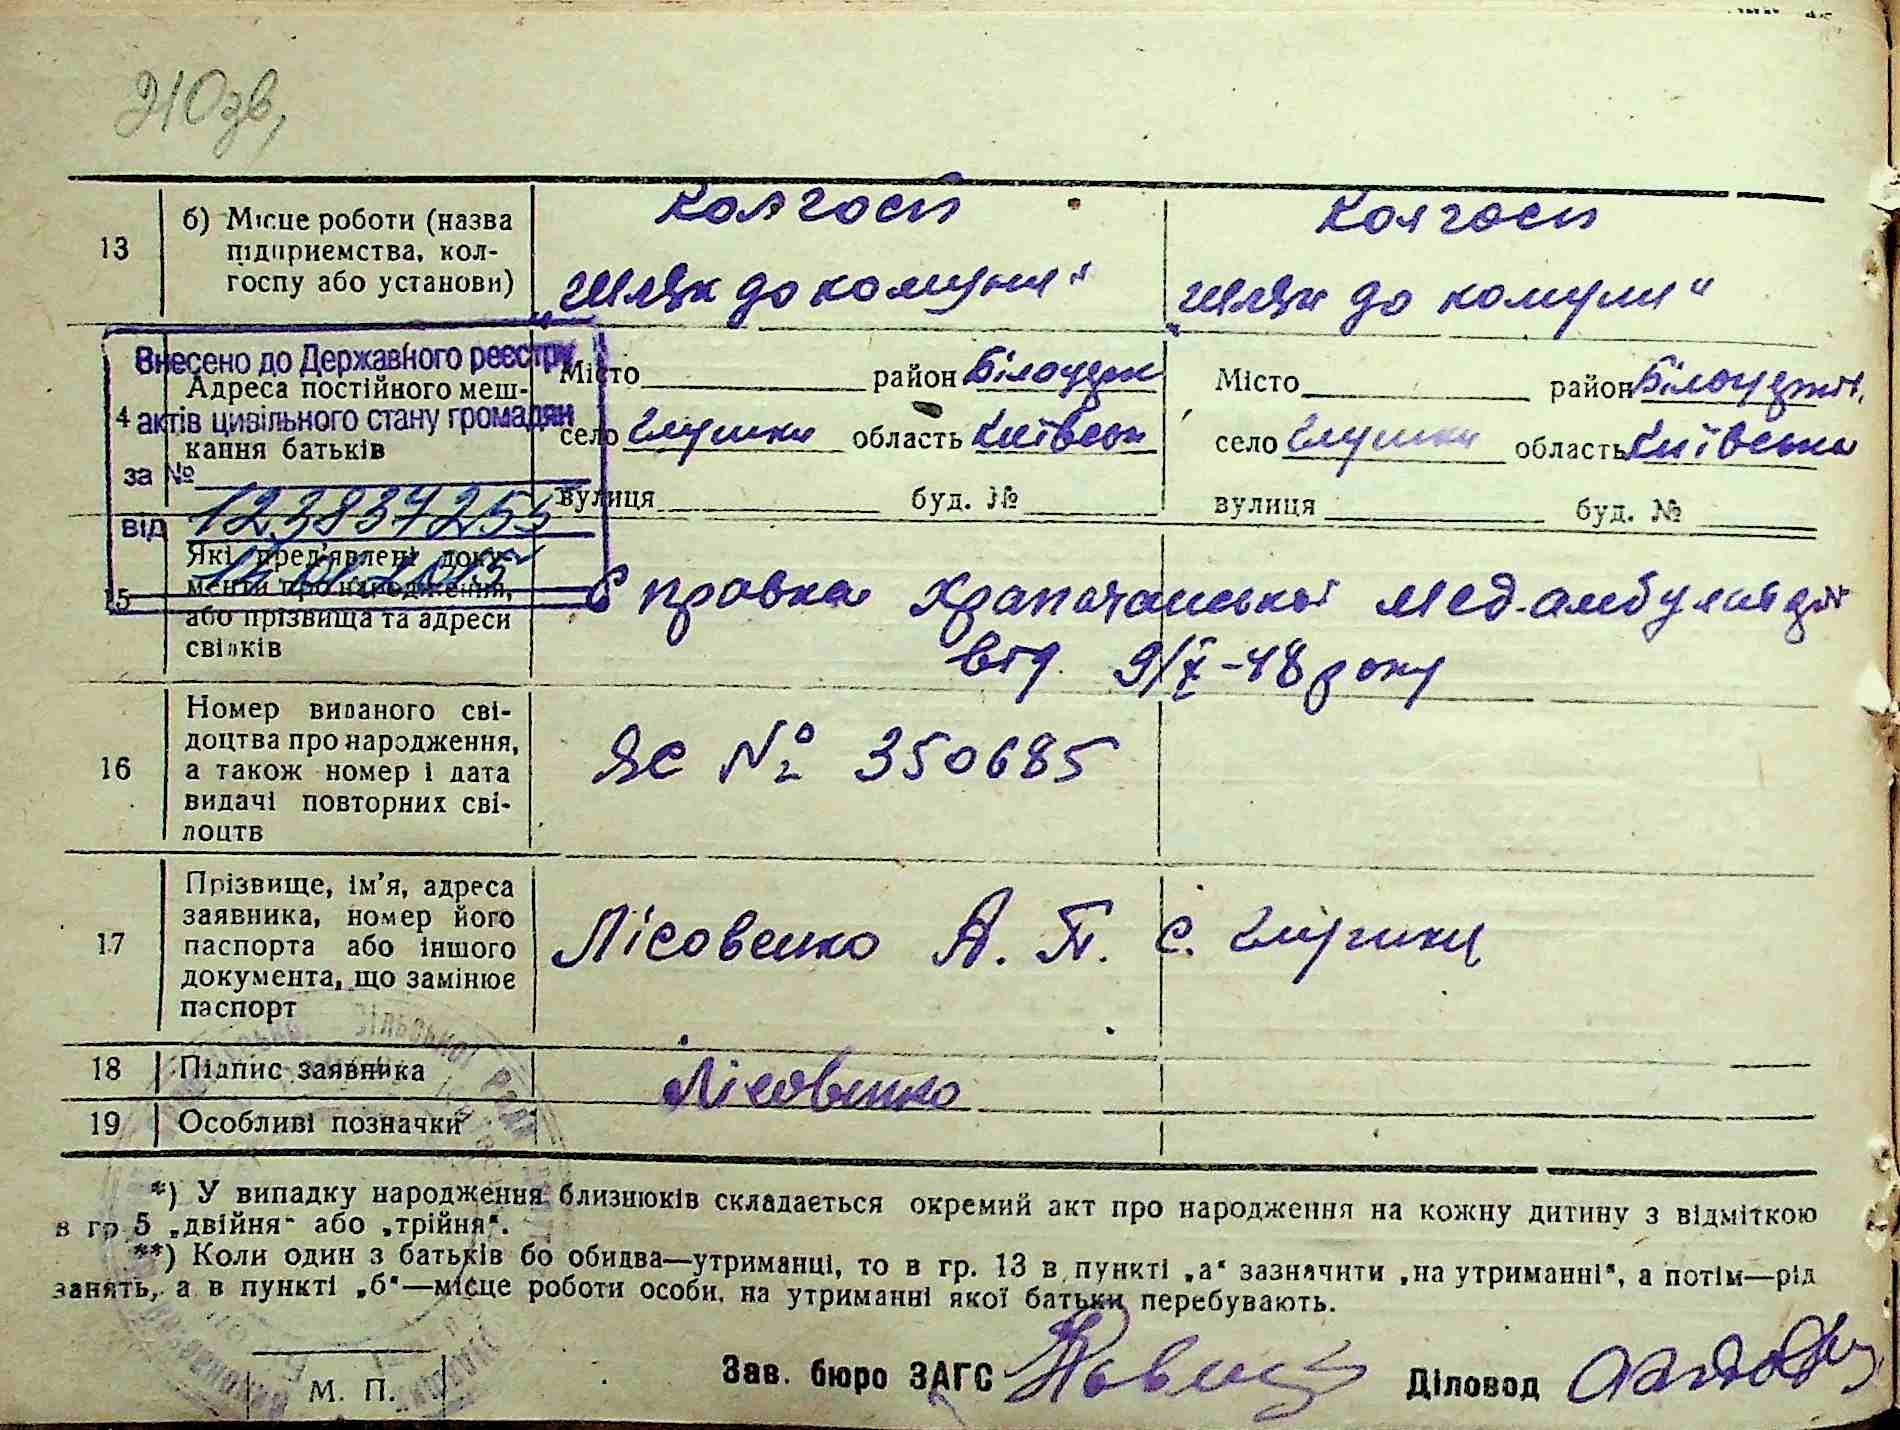 210зв,
13
б) Місце роботи (назва
підприємства, кол-
госпу або установи)
Колгосп
„Шлях до комуни“
Колгосп
„Шлях до комуни“
Внесено до Державного реєстру
актів цивільного стану громадян
за №
123837255
від
Адреса постійного меш-
кання батьків
Місто район Білоцерк
село Глушки область Київськ
вулиця буд. №
Місто район Білоцерків,
село Глушки область Київська
вулиця буд. №
15
Які пред'явлені доку-
менти про народження,
або прізвища та адреси
свідків
Справка Храпачанської мед-амбулаторії
від. 9/X-48 року
16
Номер виданого сві-
доцтва про народження,
а також номер і дата
видачі повторних сві-
доцтв
ЯС № 350685
17
Прізвище, ім'я, адреса
заявника, номер його
паспорта або іншого
документа, що замінює
паспорт
Лісовенко А. П. с. Глушки
18
Підпис заявника
Лісовенко
19
Особливі позначки
*) У випадку народження близнюків складається окремий акт про народження на кожну дитину з відміткою
в гр 5 „двійня“ або „трійня“.
**) Коли один з батьків бо обидва—утриманці, то в гр. 13 в пункті „а“ зазначити „на утриманні“, а потім—рід
занять, а в пункті „б“—місце роботи особи, на утриманні якої батьки перебувають.
М. П.
Зав. бюро ЗАГС
Діловод